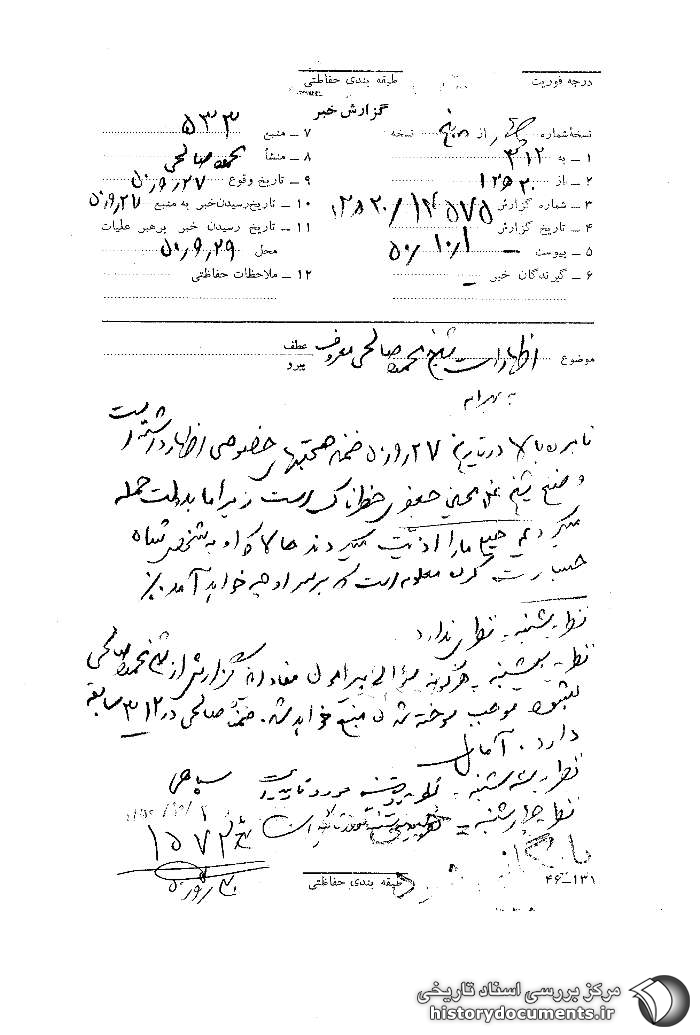 درجه فوریت
طبقه بندی حفاظتی
گزارش خبر
نسخهٔ شماره از نسخه
۱ - به ۳۱۲
۲ - از ۱۲ ه ۲۰
۳ - شماره گزارش ۱۲ ه ۲۰/۱۴۵۷۵
۴ - تاریخ گزارش ۵۰/۱۰/۱
۵ - پیوست
۶ - گیرندگان خبر
۷ - منبع ۵۳۳
۸ - منشأ محمد صالحی
۹ - تاریخ وقوع ۵۰/۹/۲۷
۱۰ - تاریخ رسیدن خبر به منبع ۵۰/۹/۲۷
۱۱ - تاریخ رسیدن خبر برهبر عملیات
محل ۵۰/۹/۲۹
۱۲ - ملاحظات حفاظتی
موضوع اظهارات شیخ محمد صالحی معروف
عطف
پیرو
نامبرده بالا در تاریخ ۵۰/۹/۲۷ ضمن صحبتهای خصوصی اظهار داشته است
وضع شیخ جعفری خطرناک است زیرا ما بدولت حمله
میکردیم ما را اذیت میکردند حالا که او به شخص شاه
جسارت کرده معلوم است که بر سر او چه خواهد آمد ٪
نظریه شنبه - نظری ندارد
نظریه یکشنبه - هرگونه سؤالی پیرامون مفاد گزارش از شیخ محمد صالحی
موجب سوخته شدن منبع خواهد شد. ضمناً صالحی در ۳۱۲ سابقه
دارد.
نظریه سه شنبه - نظریه یکشنبه مورد تایید است
نظریه چهارشنبه - نظریه سه شنبه مورد تایید است
بایگانی
۱۵۷۳
طبقه بندی حفاظتی
۴۶-۱۳۱
مرکز بررسی اسناد تاریخی
historydocuments.ir